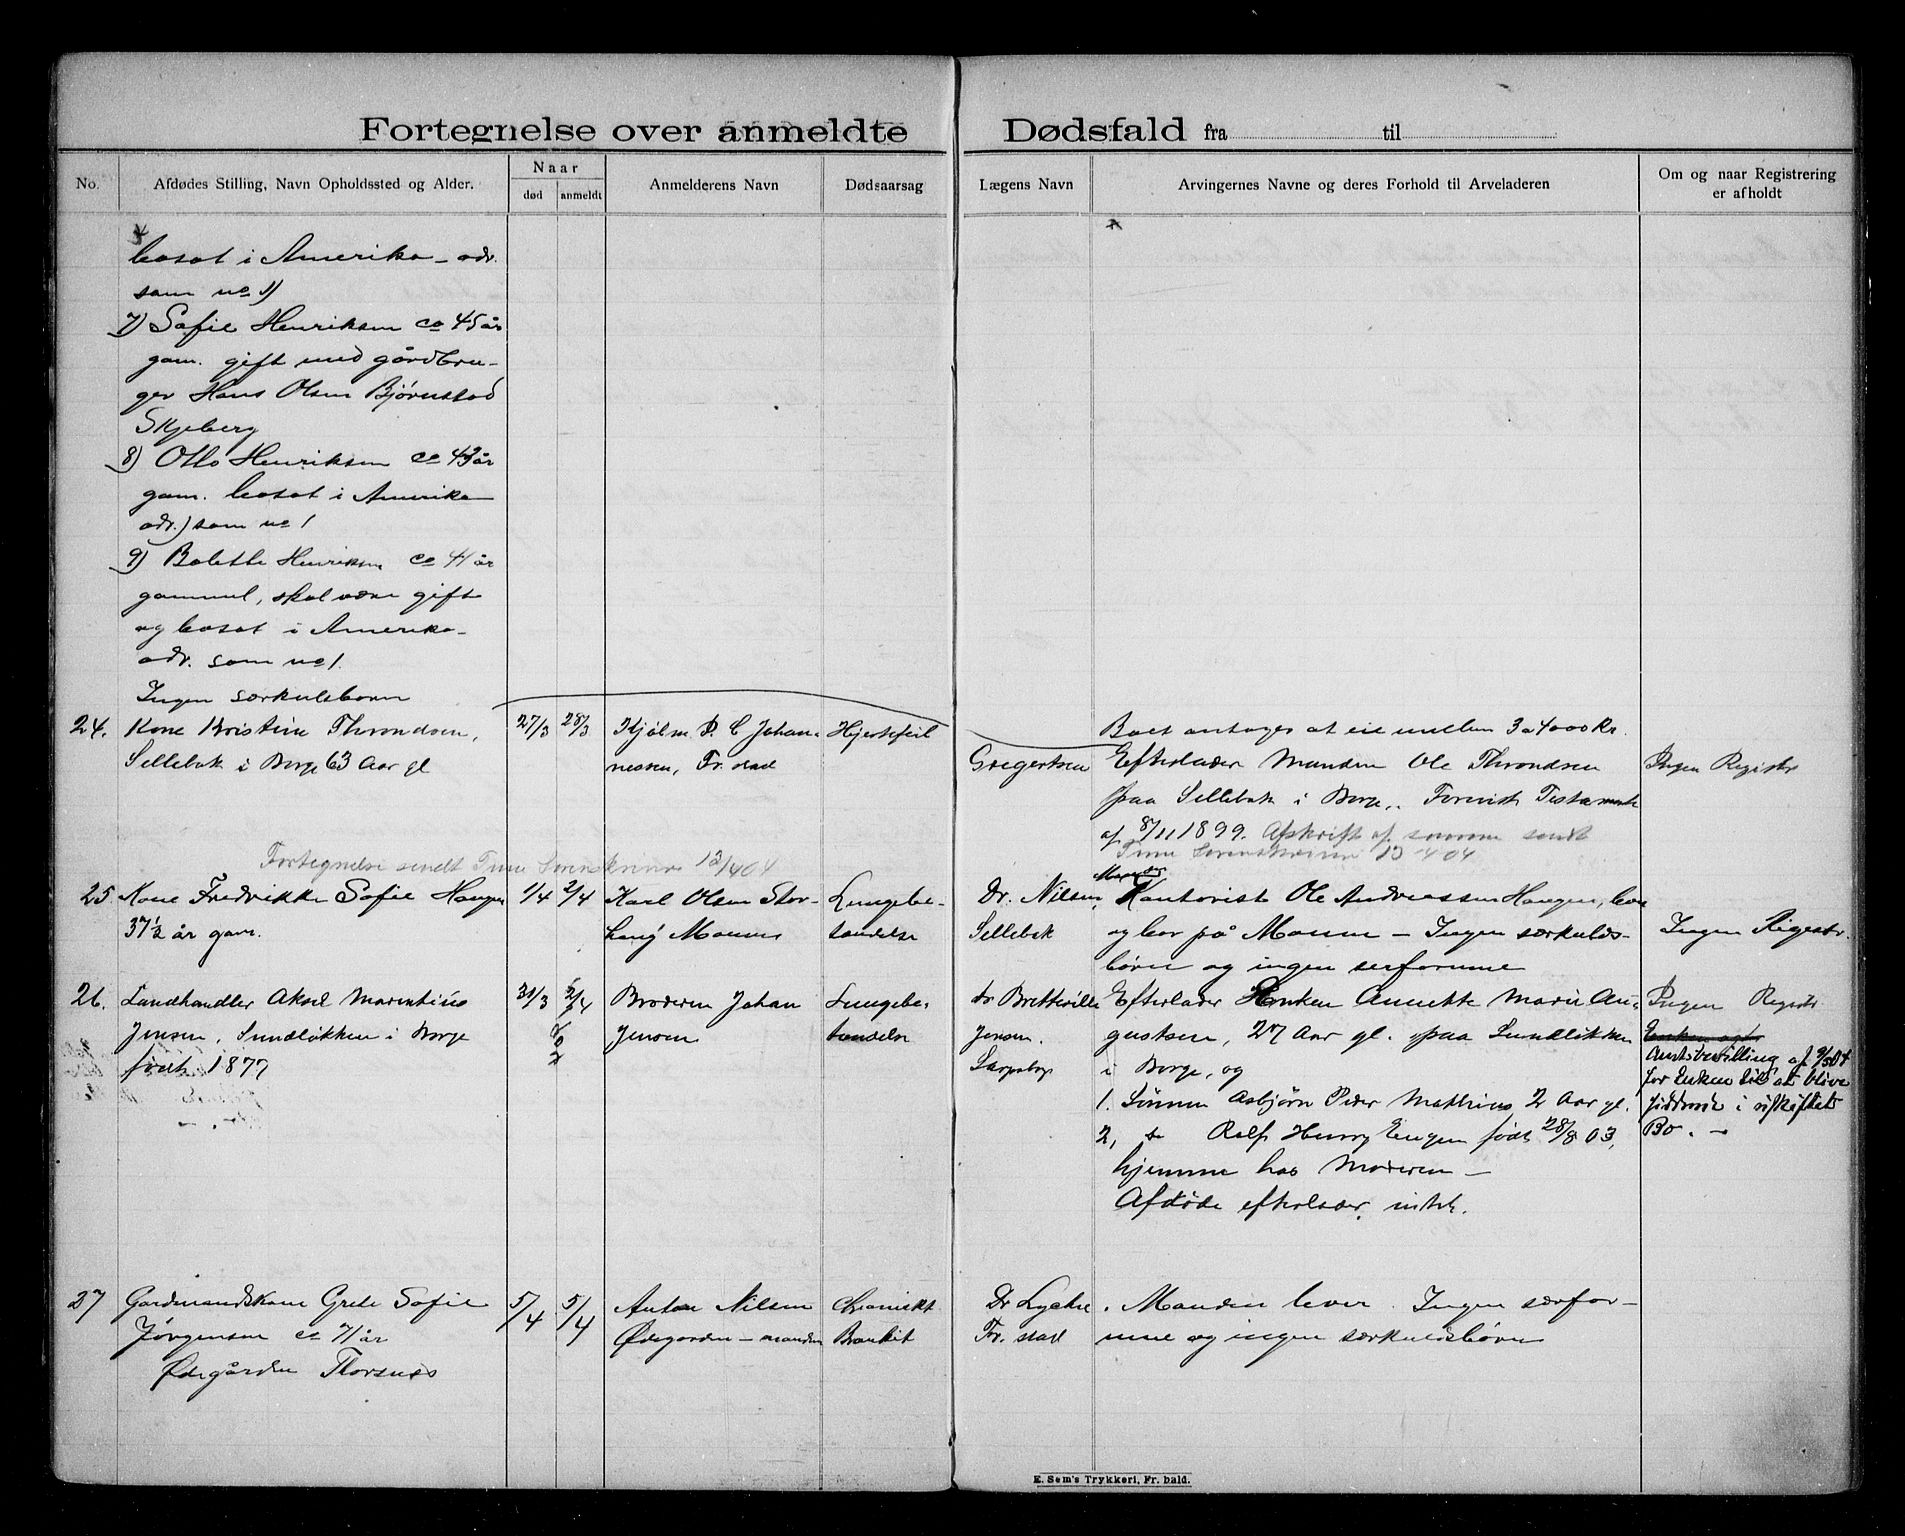 Fortegnelse over anmeldte Dødsfald fra til
No.
Afdødes Stilling, Navn Opholdssted og Alder.
Naar
død
anmeldt
Anmelderens Navn
Dødsaarsag
Lægens Navn
Arvingernes Navne og deres Forhold til Arveladeren
Om og naar Registrering
er afholdt
bosat i Amerika – adr.
som no 1)
7) Sofie Henriksen ca 45 år
gam. gift med gårdbru-
ger Hans Olsen Bjørnstad
Skjeberg
8) Otto Henriksen ca 43 år
gam. bosat i Amerika
adr.) som no 1
9) Bolette Henriksen ca 41 år
gammel, skal være gift
og bosat i Amerika –
adr. som no 1.
Ingen særkulsbørn
Boet antages at eie mellem 3 a 4000 Kr.
24. Kone Kristine Throndsen,
Sellebak i Borge 63 Aar gl
27/3
28/3
Kjølm P. C Johan-
nessen, Fr. stad
Hjertefeil
Gregertsen
Efterlader Manden Ole Throndsen
paa Sellebak i Borge. Forevist Testamente
af 8/11 1899. Afskrift af samme sendt
Tune Sorenskriveri 13 4 04
Ingen Registr
Fortegnelse sendt Tune Sorenskriveri 12/4 04
25 Kone Fredrikke Sofie Haugen
37 1/2 år gam.
1/4
2/4
Karl Olsen Stor-
haug Moum
Lungebe-
tændelse
Dr. Nilsen,
Sellebak
Manden
Kantorist Ole Andreassen Haugen, lever
og bor på Moum – Ingen særkulds-
børn og ingen særformue
Ingen Rigestr.
26. Landhandler Aksel Marentius
Jensen, Sundløkken i Borge
født 1877
31/3
2/4
Broderen Johan
Jensen
Lungebe-
tændelse
Dr Bretteville
Jensen.
Sarpsborg
Efterlader Enken Annette Marie Au-
gustsen, 27 Aar gl. paa Sundløkken
i Borge, og
1. Sønnen Asbjørn Peder Mathias 2 Aar gl.
2, do Rolf Henry Eugen født 28/8 03,
hjemme hos Moderen –
Afdøde efterlader intet.
Ingen Registr
Enken
Amtsbevilling af 9/5 04
for Enken til at blive
siddende i uskiftet
Bo. –
27 Gardmandskone Grete Sofie
Jørgensen ca 71 år
Ødegården Thorsnes
5/4
5/4
Anton Nilsen
Ødegarden – manden
Chroniskt
Bronkit
Dr Lyche
Fr. stad
Manden lever. Ingen særfor-
mue og ingen særkuldsbørn
E. Sem's Trykkeri, Fr. hald.